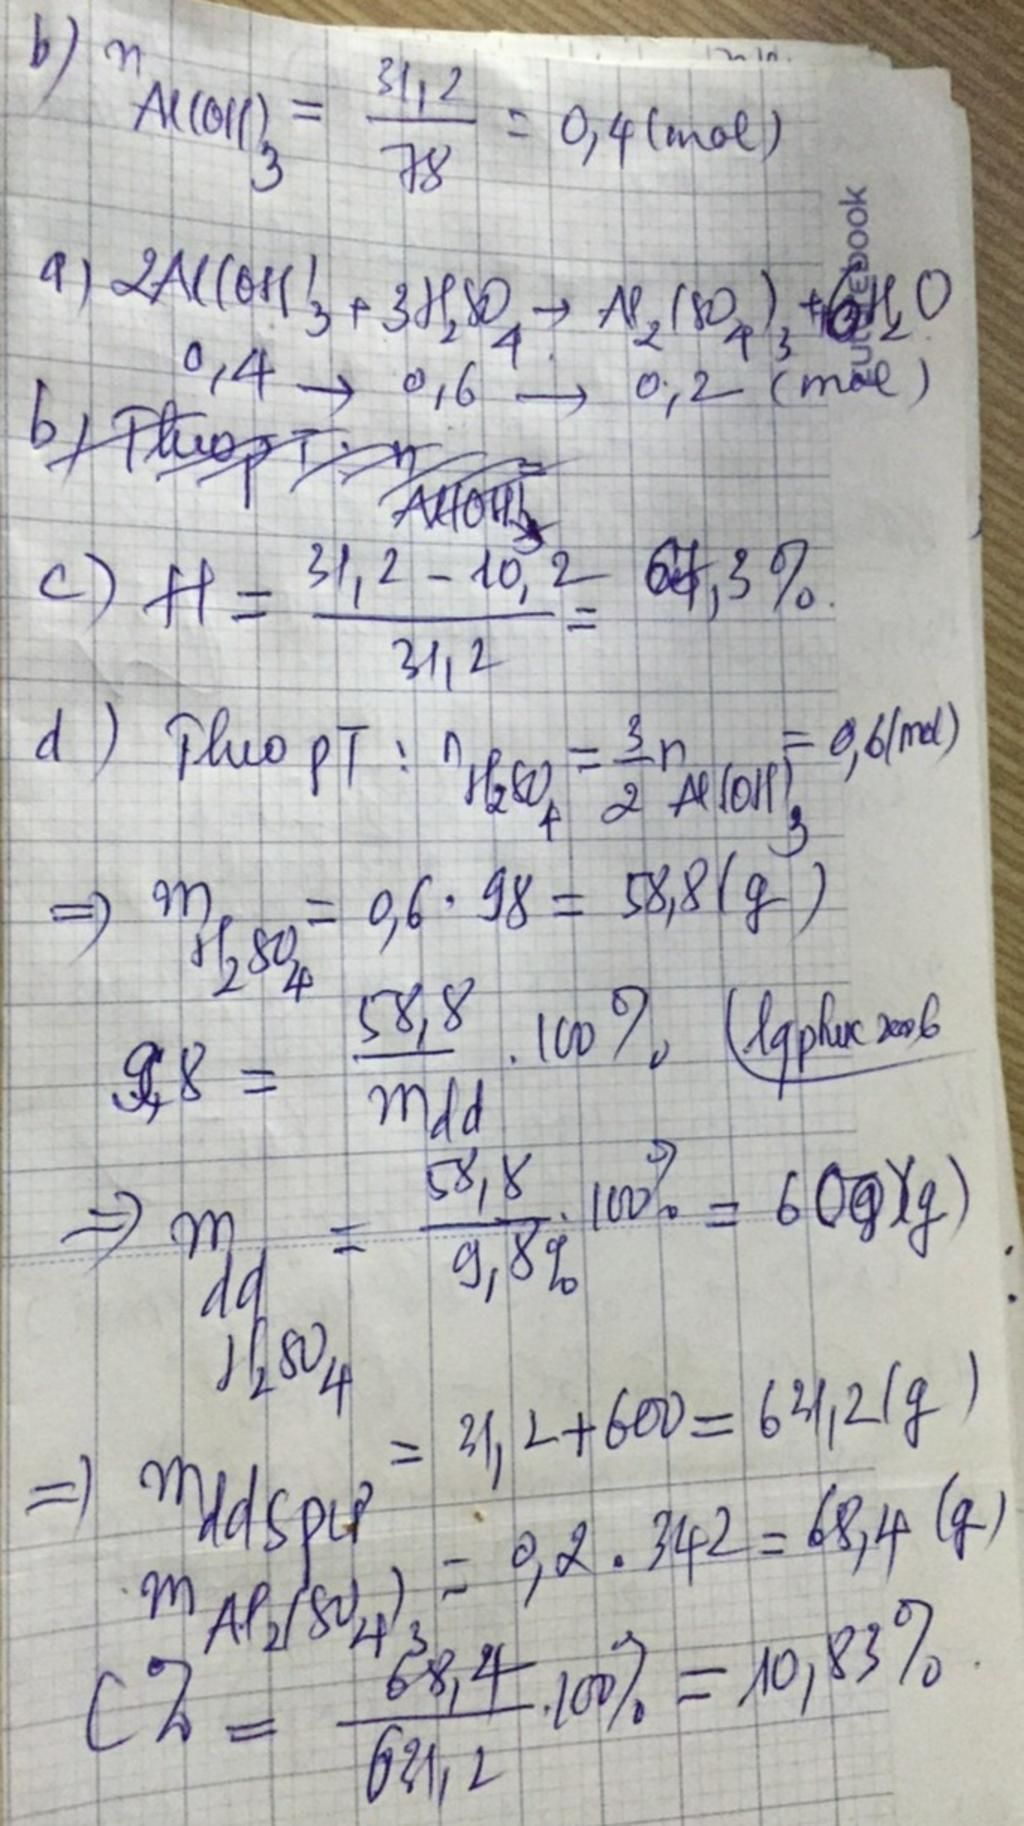 b) n Al(OH)3 = 31,2 / 78 = 0,4 (mol)
a) 2Al(OH)3 + 3H2SO4 → Al2(SO4)3 + 6H2O
0,4 → 0,6 → 0,2 (mol)
b) Theo pT: n Al(OH)3 =
c) H = 31,2 - 10,2 / 31,2 = 67,3%.
d) Theo pT: n H2SO4 = 3/2 n Al(OH)3 = 0,6 (mol)
=> m H2SO4 = 0,6 . 98 = 58,8 (g)
9,8 = 58,8 / mdd . 100%
=> m dd H2SO4 = 58,8 / 9,8% . 100% = 600 (g)
=> m ddspư = 31,2 + 600 = 631,2 (g)
m Al2(SO4)3 = 0,2 . 342 = 68,4 (g)
C% = 68,4 / 631,2 . 100% = 10,83%.